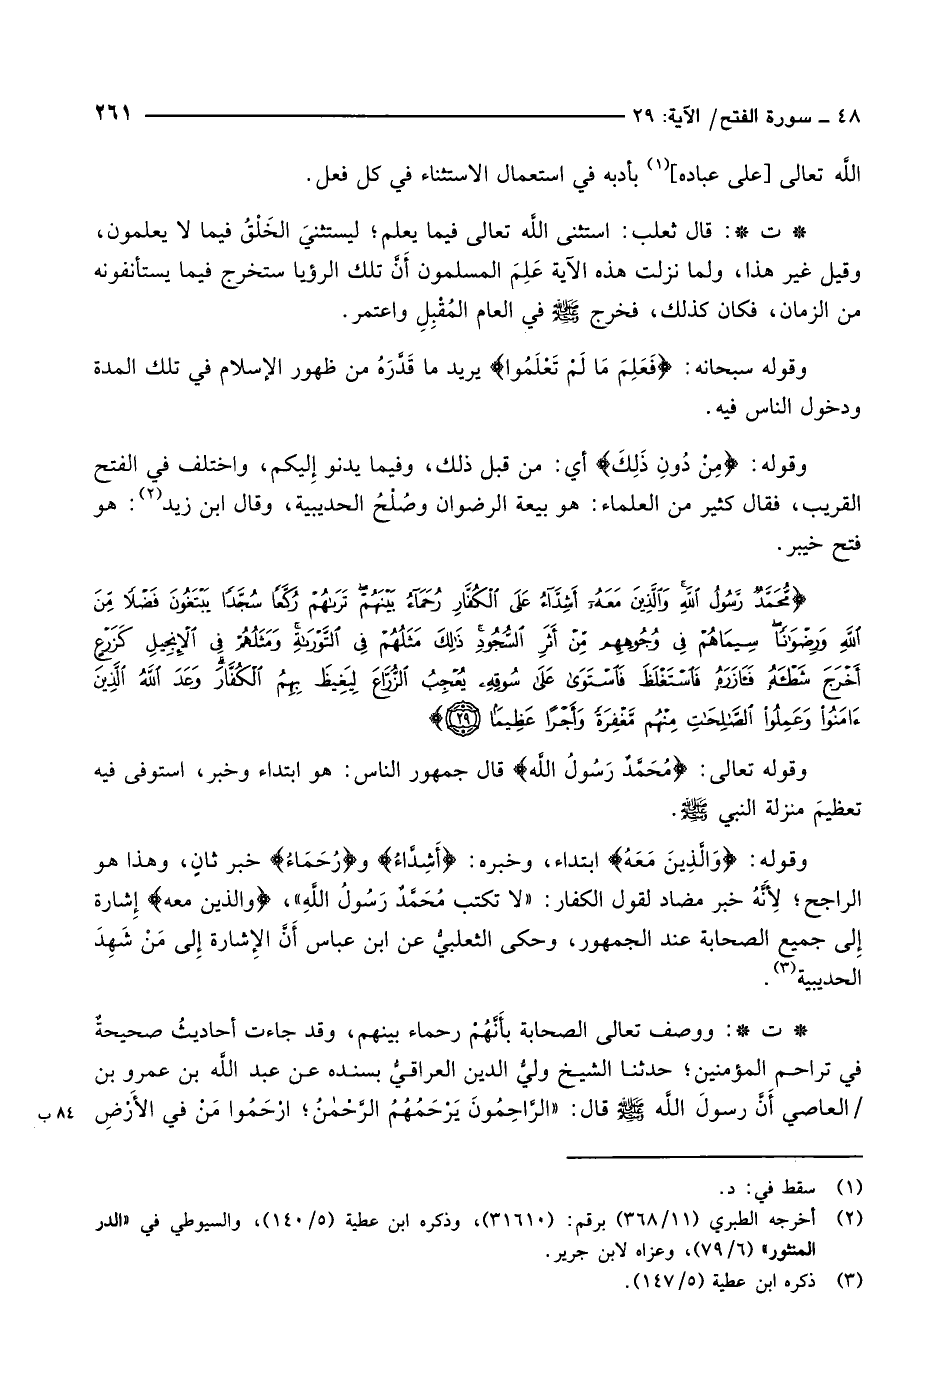 ٤٨ ـ سورة الفتح/ الآية: ٢٩ ٢٦١
اللَّه تعالى [على عباده](١) بأدبه في استعمال الاستثناء في كل فعل.
* ت *: قال ثعلب: استثنى اللَّه تعالى فيما يعلم؛ ليستثنيَ الخَلْقُ فيما لا يعلمون،
وقيل غير هذا، ولما نزلت هذه الآية عَلِمَ المسلمون أَنَّ تلك الرؤيا ستخرج فيما يستأنفونه
من الزمان، فكان كذلك، فخرج ﷺ في العام المُقْبِلِ واعتمر.
وقوله سبحانه: ﴿فَعَلِمَ مَا لَمْ تَعْلَمُوا﴾ يريد ما قَدَّرَهُ من ظهور الإسلام في تلك المدة
ودخول الناس فيه.
وقوله: ﴿مِنْ دُونِ ذَلِكَ﴾ أي: من قبل ذلك، وفيما يدنو إليكم، واختلف في الفتح
القريب، فقال كثير من العلماء: هو بيعة الرضوان وصُلْحُ الحديبية، وقال ابن زيد(٢): هو
فتح خيبر.
﴿مُّحَمَّدٌ رَّسُولُ ٱللَّهِۚ وَٱلَّذِينَ مَعَهُۥٓ أَشِدَّآءُ عَلَى ٱلْكُفَّارِ رُحَمَآءُ بَيْنَهُمْۖ تَرَىٰهُمْ رُكَّعًا سُجَّدًا يَبْتَغُونَ فَضْلًا مِّنَ
ٱللَّهِ وَرِضْوَٰنًاۖ سِيمَاهُمْ فِي وُجُوهِهِم مِّنْ أَثَرِ ٱلسُّجُودِۚ ذَٰلِكَ مَثَلُهُمْ فِي ٱلتَّوْرَىٰةِۚ وَمَثَلُهُمْ فِي ٱلْإِنجِيلِ كَزَرْعٍ
أَخْرَجَ شَطْـَٔهُۥ فَـَٔازَرَهُۥ فَٱسْتَغْلَظَ فَٱسْتَوَىٰ عَلَىٰ سُوقِهِۦ يُعْجِبُ ٱلزُّرَّاعَ لِيَغِيظَ بِهِمُ ٱلْكُفَّارَۗ وَعَدَ ٱللَّهُ ٱلَّذِينَ
ءَامَنُوا۟ وَعَمِلُوا۟ ٱلصَّٰلِحَٰتِ مِنْهُم مَّغْفِرَةً وَأَجْرًا عَظِيمًا ٢٩﴾
وقوله تعالى: ﴿مُحَمَّدٌ رَسُولُ اللَّه﴾ قال جمهور الناس: هو ابتداء وخبر، استوفى فيه
تعظيمَ منزلة النبي ﷺ.
وقوله: ﴿وَالَّذِينَ مَعَهُ﴾ ابتداء، وخبره: ﴿أَشِدَّاءُ﴾ و﴿رُحَمَاءُ﴾ خبر ثانٍ، وهذا هو
الراجح؛ لِأَنَّهُ خبر مضاد لقول الكفار: «لا تكتب مُحَمَّدٌ رَسُولُ اللَّهِ»، ﴿والذين معه﴾ إشارة
إلى جميع الصحابة عند الجمهور، وحكى الثعلبيُّ عن ابن عباس أَنَّ الإشارة إلى مَنْ شَهِدَ
الحديبية(٣).
* ت *: ووصف تعالى الصحابة بأَنَّهُمْ رحماء بينهم، وقد جاءت أحاديثُ صحيحةٌ
في تراحم المؤمنين؛ حدثنا الشيخ وليُّ الدين العراقيُّ بسنده عن عبد اللَّه بن عمرو بن
/العاصي أَنَّ رسولَ اللَّه ﷺ قال: «الرَّاحِمُونَ يَرْحَمُهُمُ الرَّحْمٰنُ؛ ارْحَمُوا مَنْ في الأَرْضِ ٨٤ ب
(١) سقط في: د.
(٢) أخرجه الطبري (٣٦٨/١١) برقم: (٣١٦١٠)، وذكره ابن عطية (١٤٠/٥)، والسيوطي في «الدر
المنثور» (٧٩/٦)، وعزاه لابن جرير.
(٣) ذكره ابن عطية (١٤٧/٥).